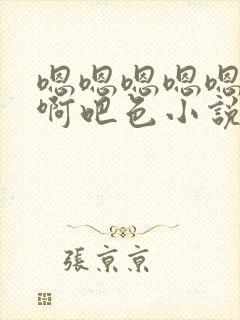 嗯嗯嗯嗯嗯
啊吧色小說
張京京